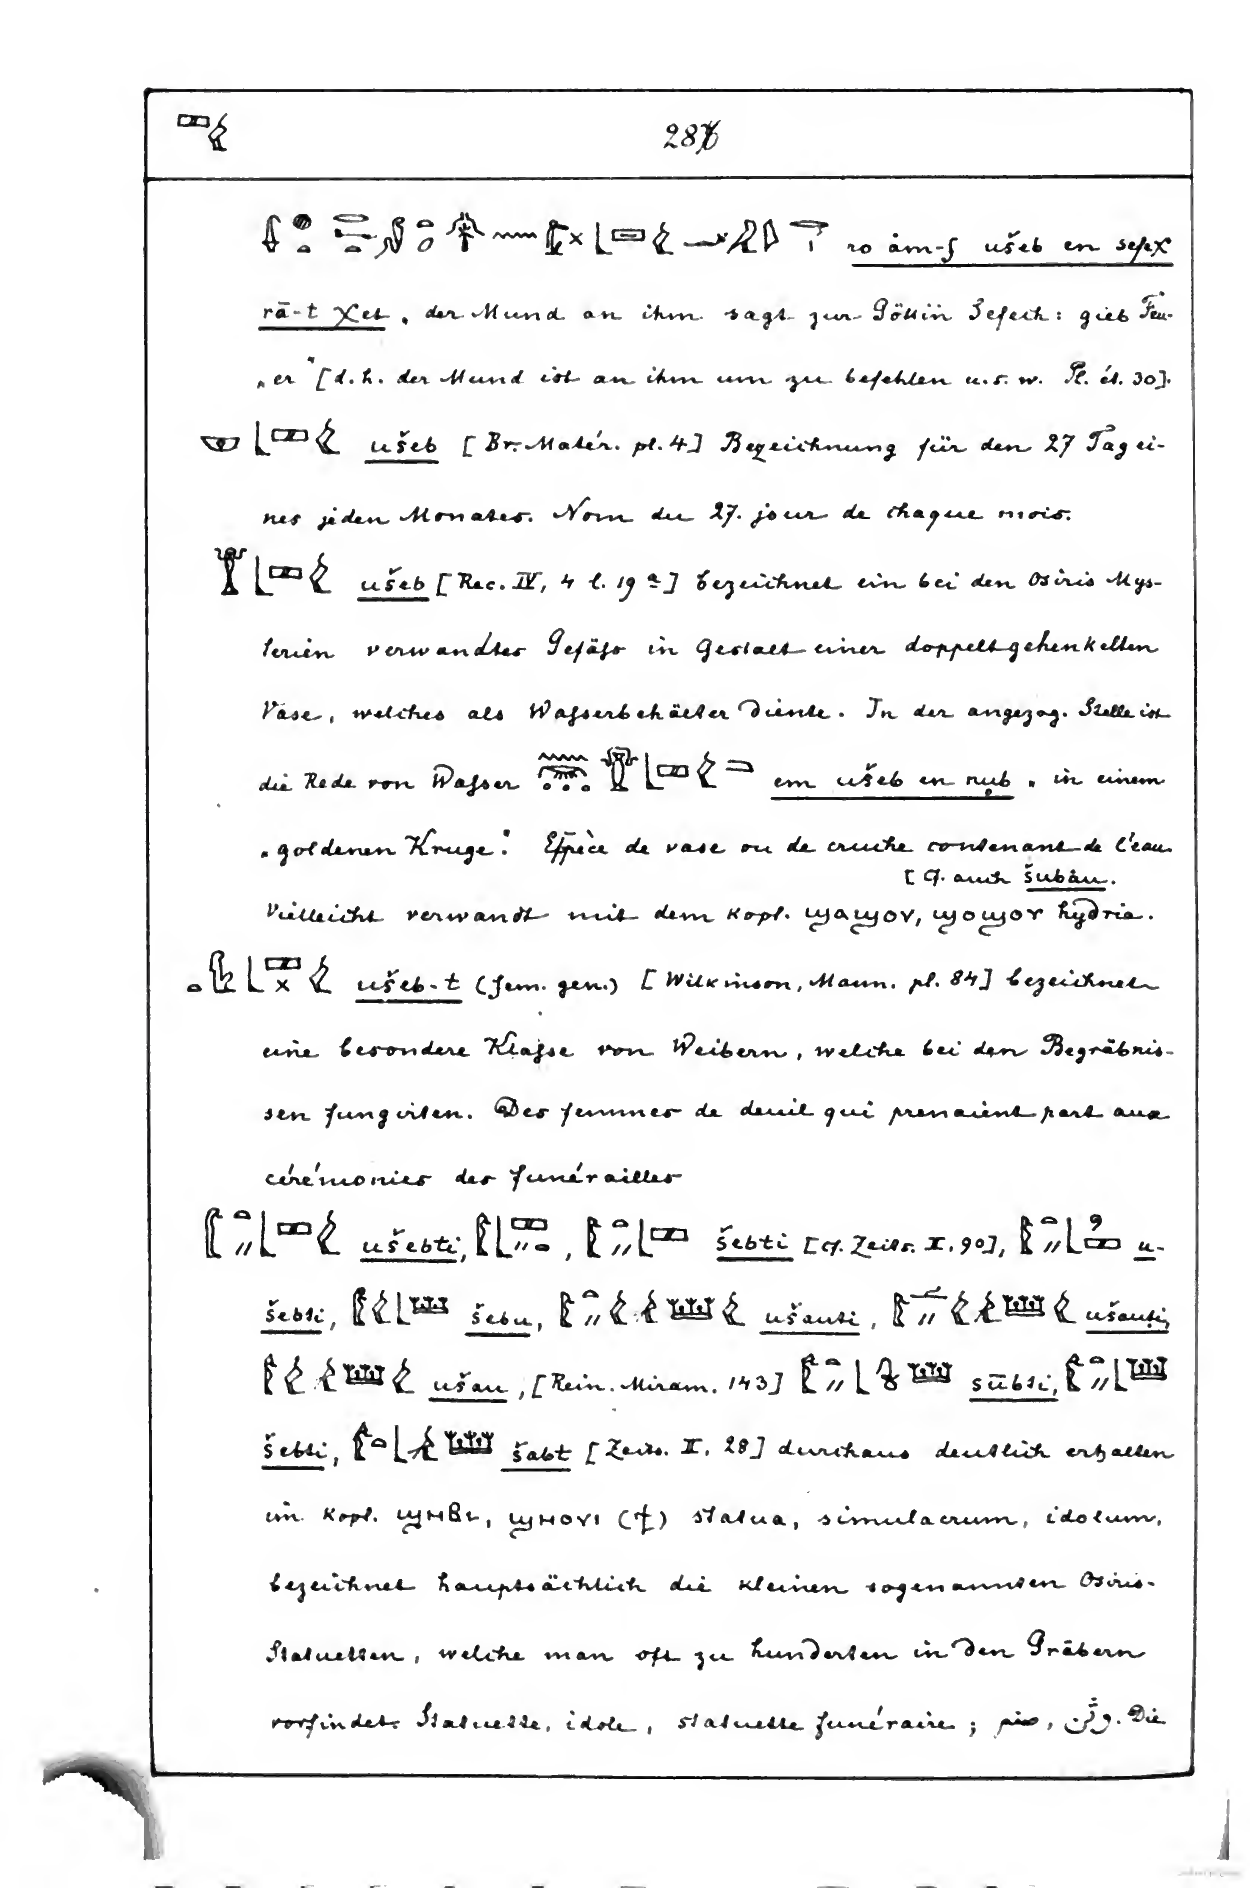 286
ro ȧm-f ušeb en sefeχ
rā-t χet „ der Mund an ihm sagt zur Göttin Sefech: gieb Feu-
„er“ [d.h. der Mund ist an ihm um zu befehlen u.s.w. Pl. ét. 30].
ušeb [Br. Matér. pl. 4] Bezeichnung für den 27 Tag ei-
nes jeden Monates. Nom du 27. jour de chaque mois.
ušeb [Rec. IV, 4 l. 19 a] bezeichnet ein bei den Osiris Mys-
terien verwandtes Gefäss in Gestalt einer doppeltgehenkelten
Vase, welches als Wasserbehälter diente. In der angezog. Stelle ist
die Rede von Wasser em ušeb en nub „ in einem
„goldenen Kruge“. Espèce de vase ou de cruche contenant de l'eau.
[Cf. auch šubȧu.
Vielleicht verwandt mit dem kopt. ϣⲁϣⲟⲩ, ϣⲟϣⲟⲩ hydria.
ušeb-t (fem. gen.) [Wilkinson, Mann. pl. 84] bezeichnet
eine besondere Klasse von Weibern, welche bei den Begräbnis-
sen fungirten. Des femmes de deuil qui prenaient part aux
cérémonies des funérailles
ušebti, , šebti [cf. Zeits. X. 90], u-
šebti, šebu, ušauti, ušauti,
ušau, [Rein. Miram. 143] sūbti,
šebti, šabt [Zeits. II. 28] durchaus deutlich erhalten
im kopt. ϣⲏⲃⲓ, ϣⲏⲟⲩⲓ (ϯ) statua, simulacrum, idolum,
bezeichnet hauptsächlich die kleinen sogenannten Osiris-
Statuetten, welche man oft zu hunderten in den Gräbern
vorfindet. Statuette, idole, statuette funéraire; صنم, وثن. Die